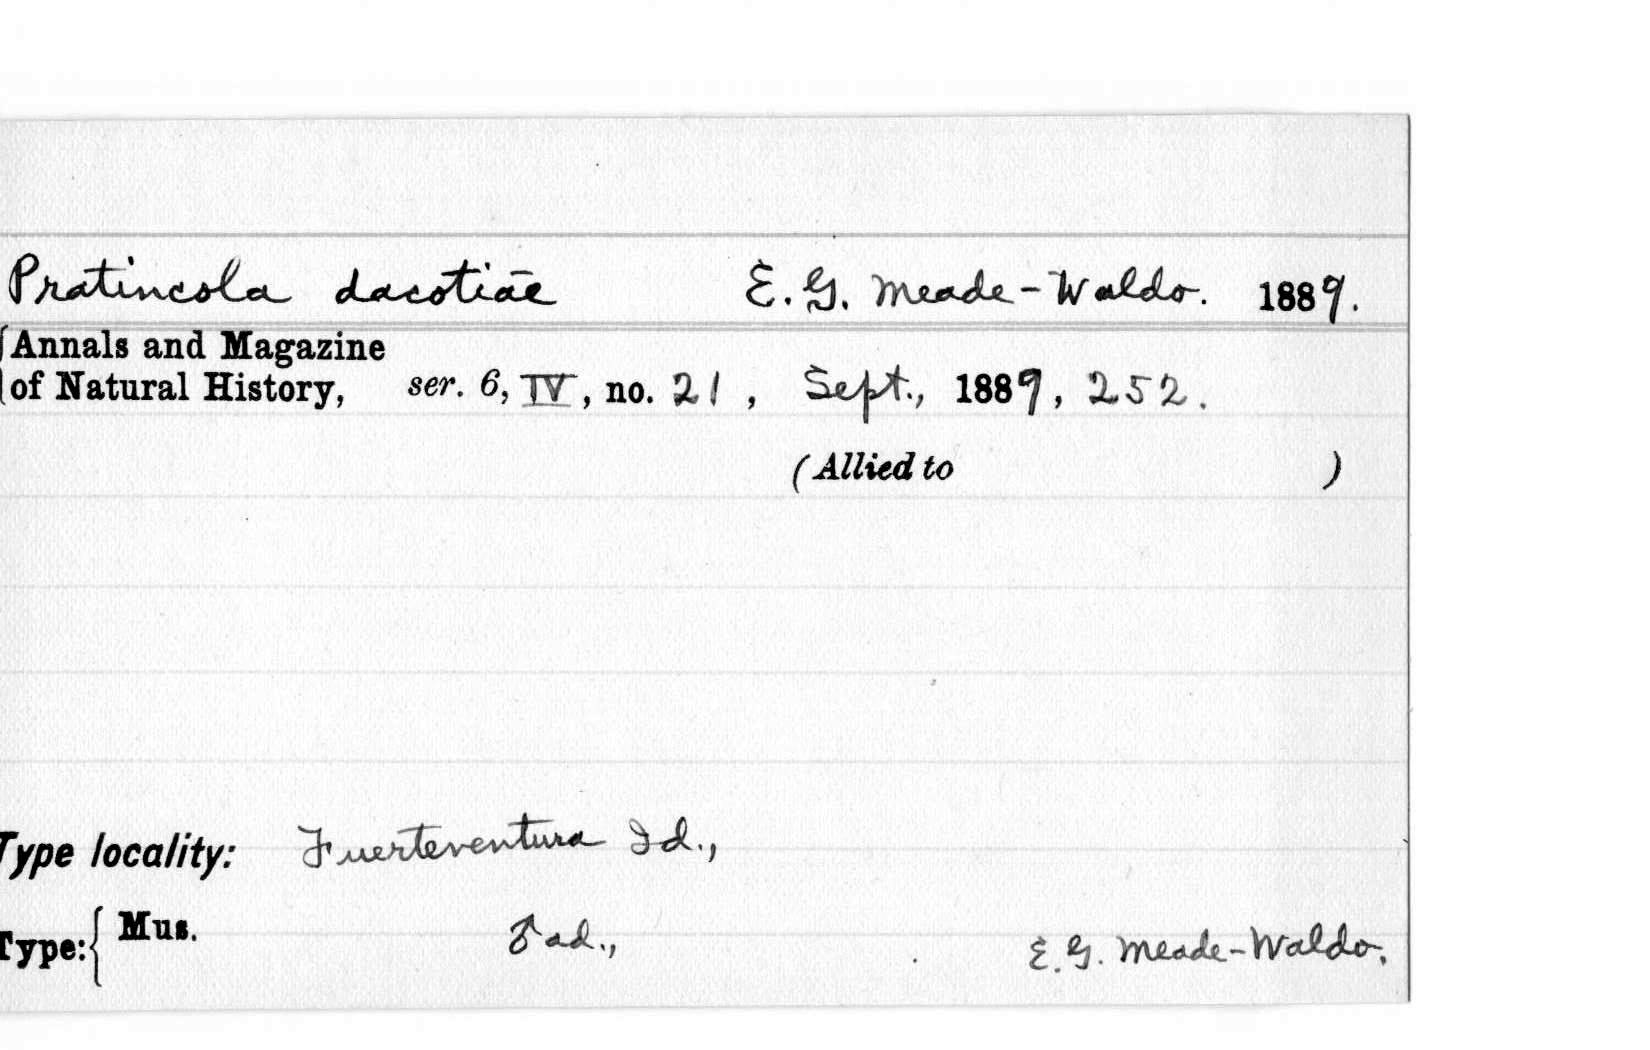 Pratincola dacotiae E. G. Meade-Waldo. 1889.
Annals and Magazine
of Natural History, ser. 6, IV, no. 21, Sept., 1889, 252.
(Allied to )
Type locality: Fuerteventura Id.,
Type: Mus. ♂ ad., E. G. Meade-Waldo.